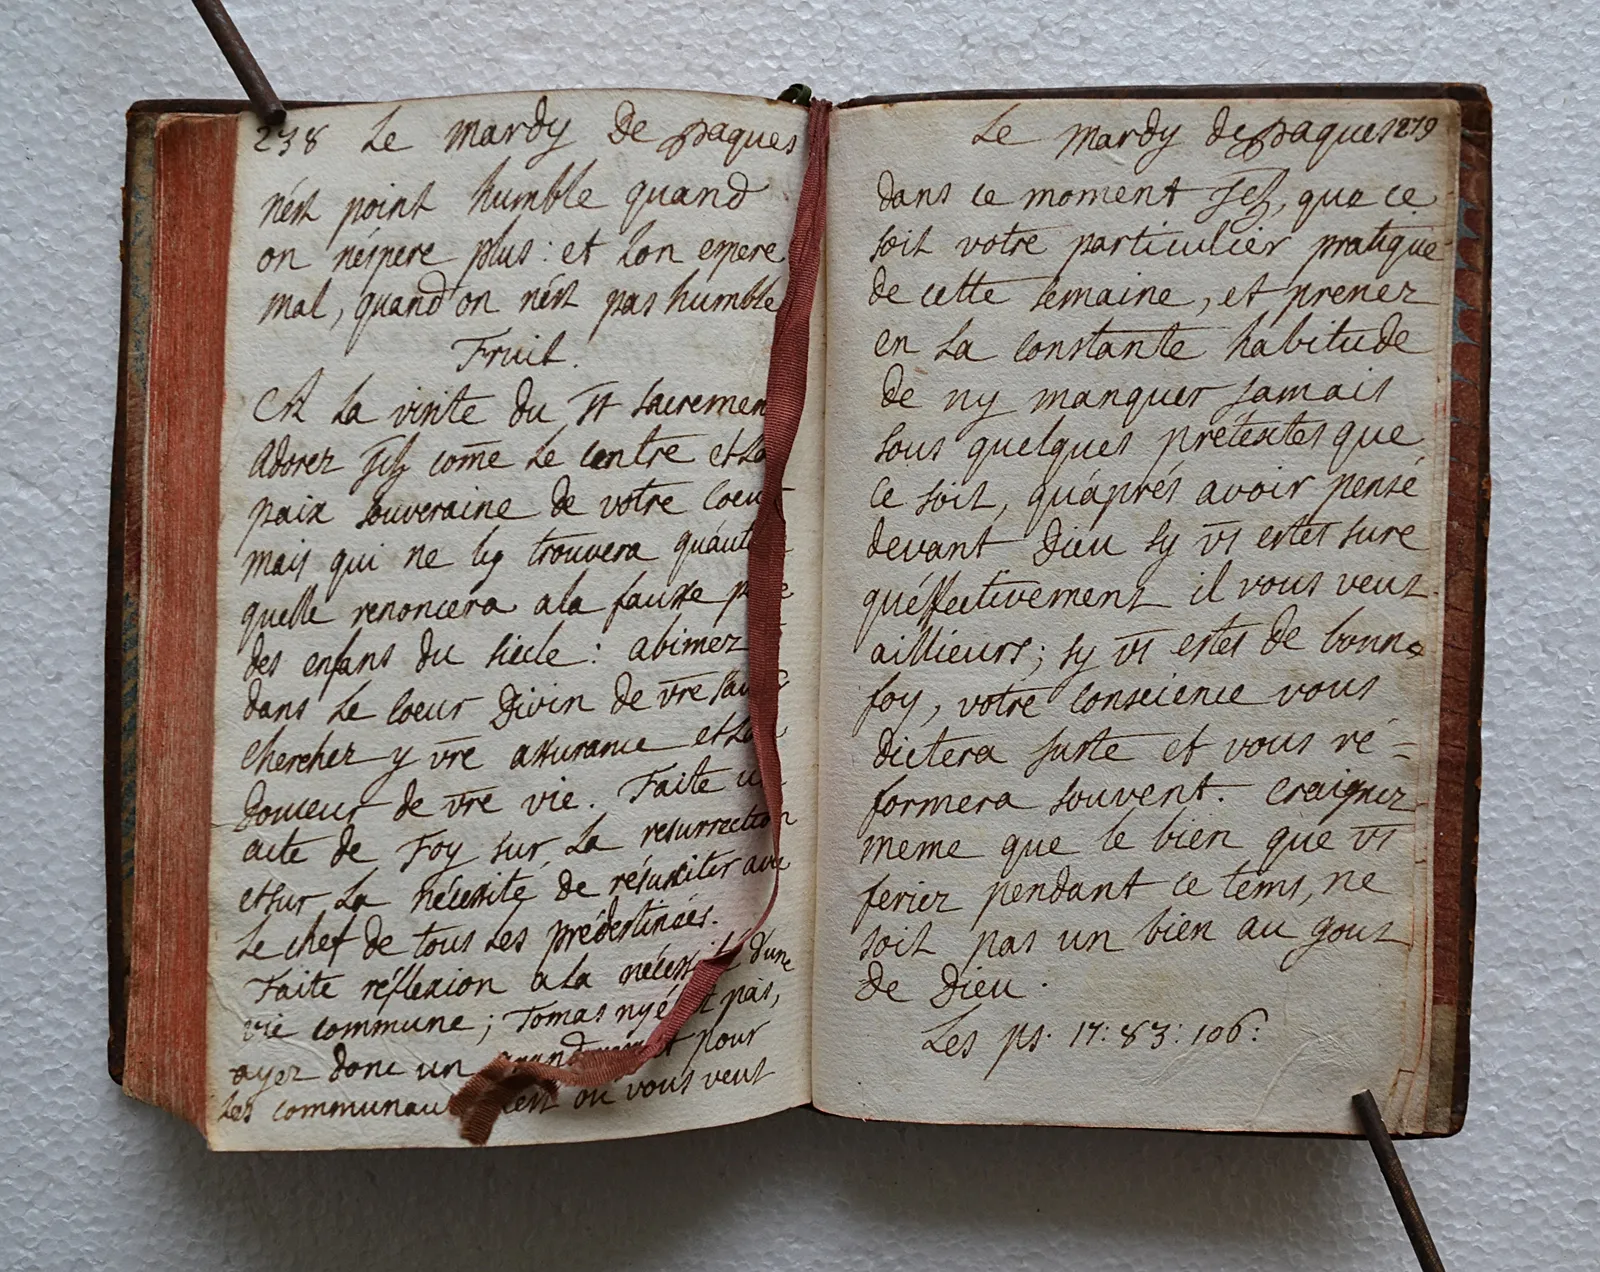 238 Le mardy De paques
n'est point humble quand
on n'espere plus : et l'on espere
mal, quand on n'est pas humble
Fruit.
Est la visite du St sacremen
Adorez Jesus come le centre et la
paix souveraine de votre coeur
mais qui ne l'y trouvera qu'aut
quelle renoncera a la fausse
des enfans du siecle : abimez
dans le coeur Divin de vre
cherchez y vre assurance et la
Douceur de vre vie. Faite un
acte de Foy sur la resurrection
et sur la nécessité de résusciter avec
le chef de tous les prédestinées.
Faite réflexion a la nécessité d'une
vie commune ; Tomas n'y ét pas,
ayez donc un pour
les communau ou vous veut
Le Mardy de paques 239
dans ce moment Jesus, que ce
soit votre particulier pratique
de cette semaine, et prenez
en la constante habitude
de n'y manquer jamais
sous quelques pretextes que
ce soit, qu'aprés avoir pensé
devant Dieu sy vs estes sure
qu'éffectivement il vous veut
aillieurs ; sy vs estes de bonne
foy, votre conscience vous
dictera juste et vous ré=
formera souvent. craignez
meme que le bien que vs
feriez pendant ce tems, ne
soit pas un bien au gout
de Dieu.
Les ps. 17 : 83 : 106 :